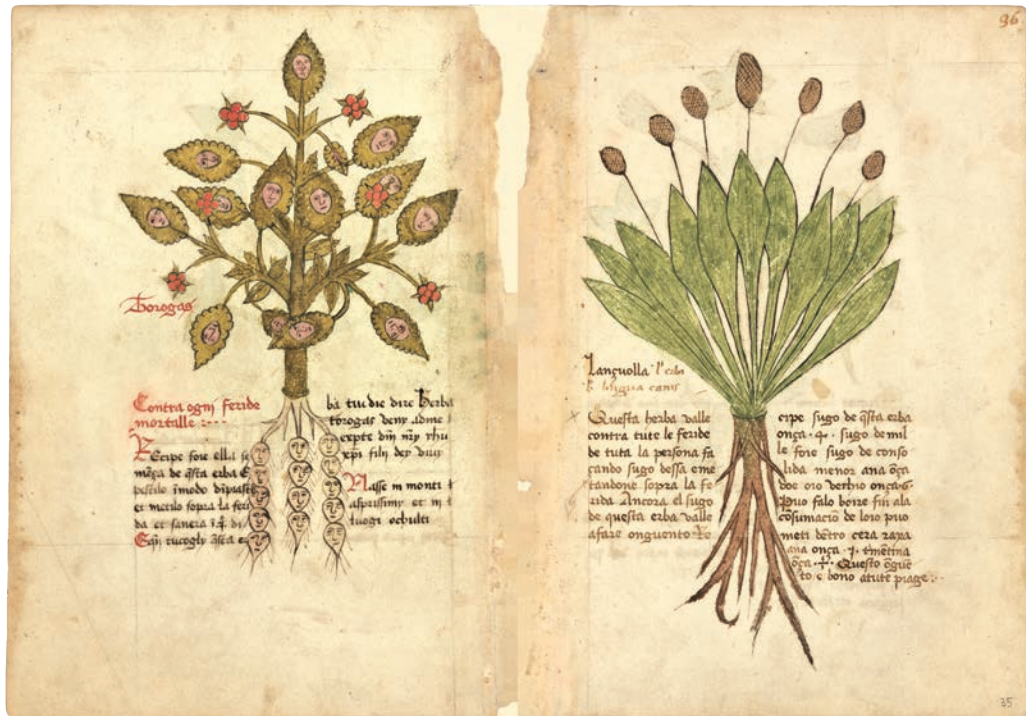 96
Torogas
Contra ogni feride
mortalle
Recipe foie ella se
mēça de q̄sta erba E
pestilo īmodo dīpiast
et metilo sopra la feri
da et sanera
Eq̄n tucogly q̄sta e
ba tu die dire herba
torogas
expi filij dey viui
Nasse in monti
asprissimy et in
luogi ochulti
Lançuolla l'erba
lingua canis
Questa herba valle
contra tute le feride
de tuta la persona fa
çando sugo dessa eme
tandone sopra la fe
rida Ancora el sugo
de questa erba valle
afare onguento
ecipe sugo de q̄sta erba
onça 4 sugo de mil
le foie sugo de conso
lida menor ana ōça
doe oio vechio onça 6
Puo falo boire fin ala
cōsumaciō de loro puo
meti dētro cera raxa
ana onça j tīmētina
ōça Questo ōgue
to e bono atute piage
35